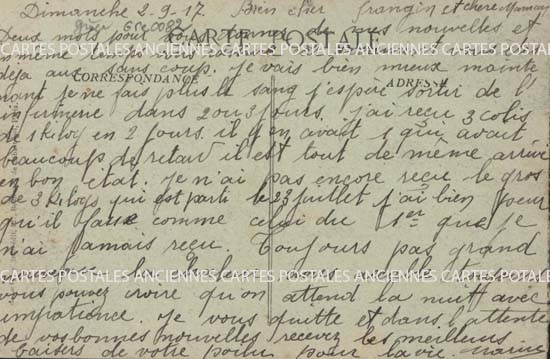 Dimanche 2-9-17. Bien cher frangin et chère Maman
Deux mots pour vous donner de mes nouvelles et
CARTE POSTALE
en même temps vous
déja aux sans coup. je vais bien mieux mainte
CORRESPONDANCE
ADRESSE
nant je ne fais plus le sang j'espère sortir de l'
infirmerie dans 2 ou 3 jours. j'ai reçu 3 colis
de 1 kilog en 2 jours. il y en avait 1 qui avait
beaucoup de retard il est tout de même arrivé
en bon état. je n'ai pas encore reçu le gros
de 3 kilogs qui est parti le 23 juillet j'ai bien peur
qu'il fasse comme celui du 1er que je
n'ai jamais reçu. Toujours pas grand
CARTES POSTALES ANCIENNES
vous pouvez croire qu'on attend la nuit avec
impatience. Je vous quitte et dans l'attente
de vos bonnes nouvelles recevez les meilleurs
baisers de votre poilu pour la vie